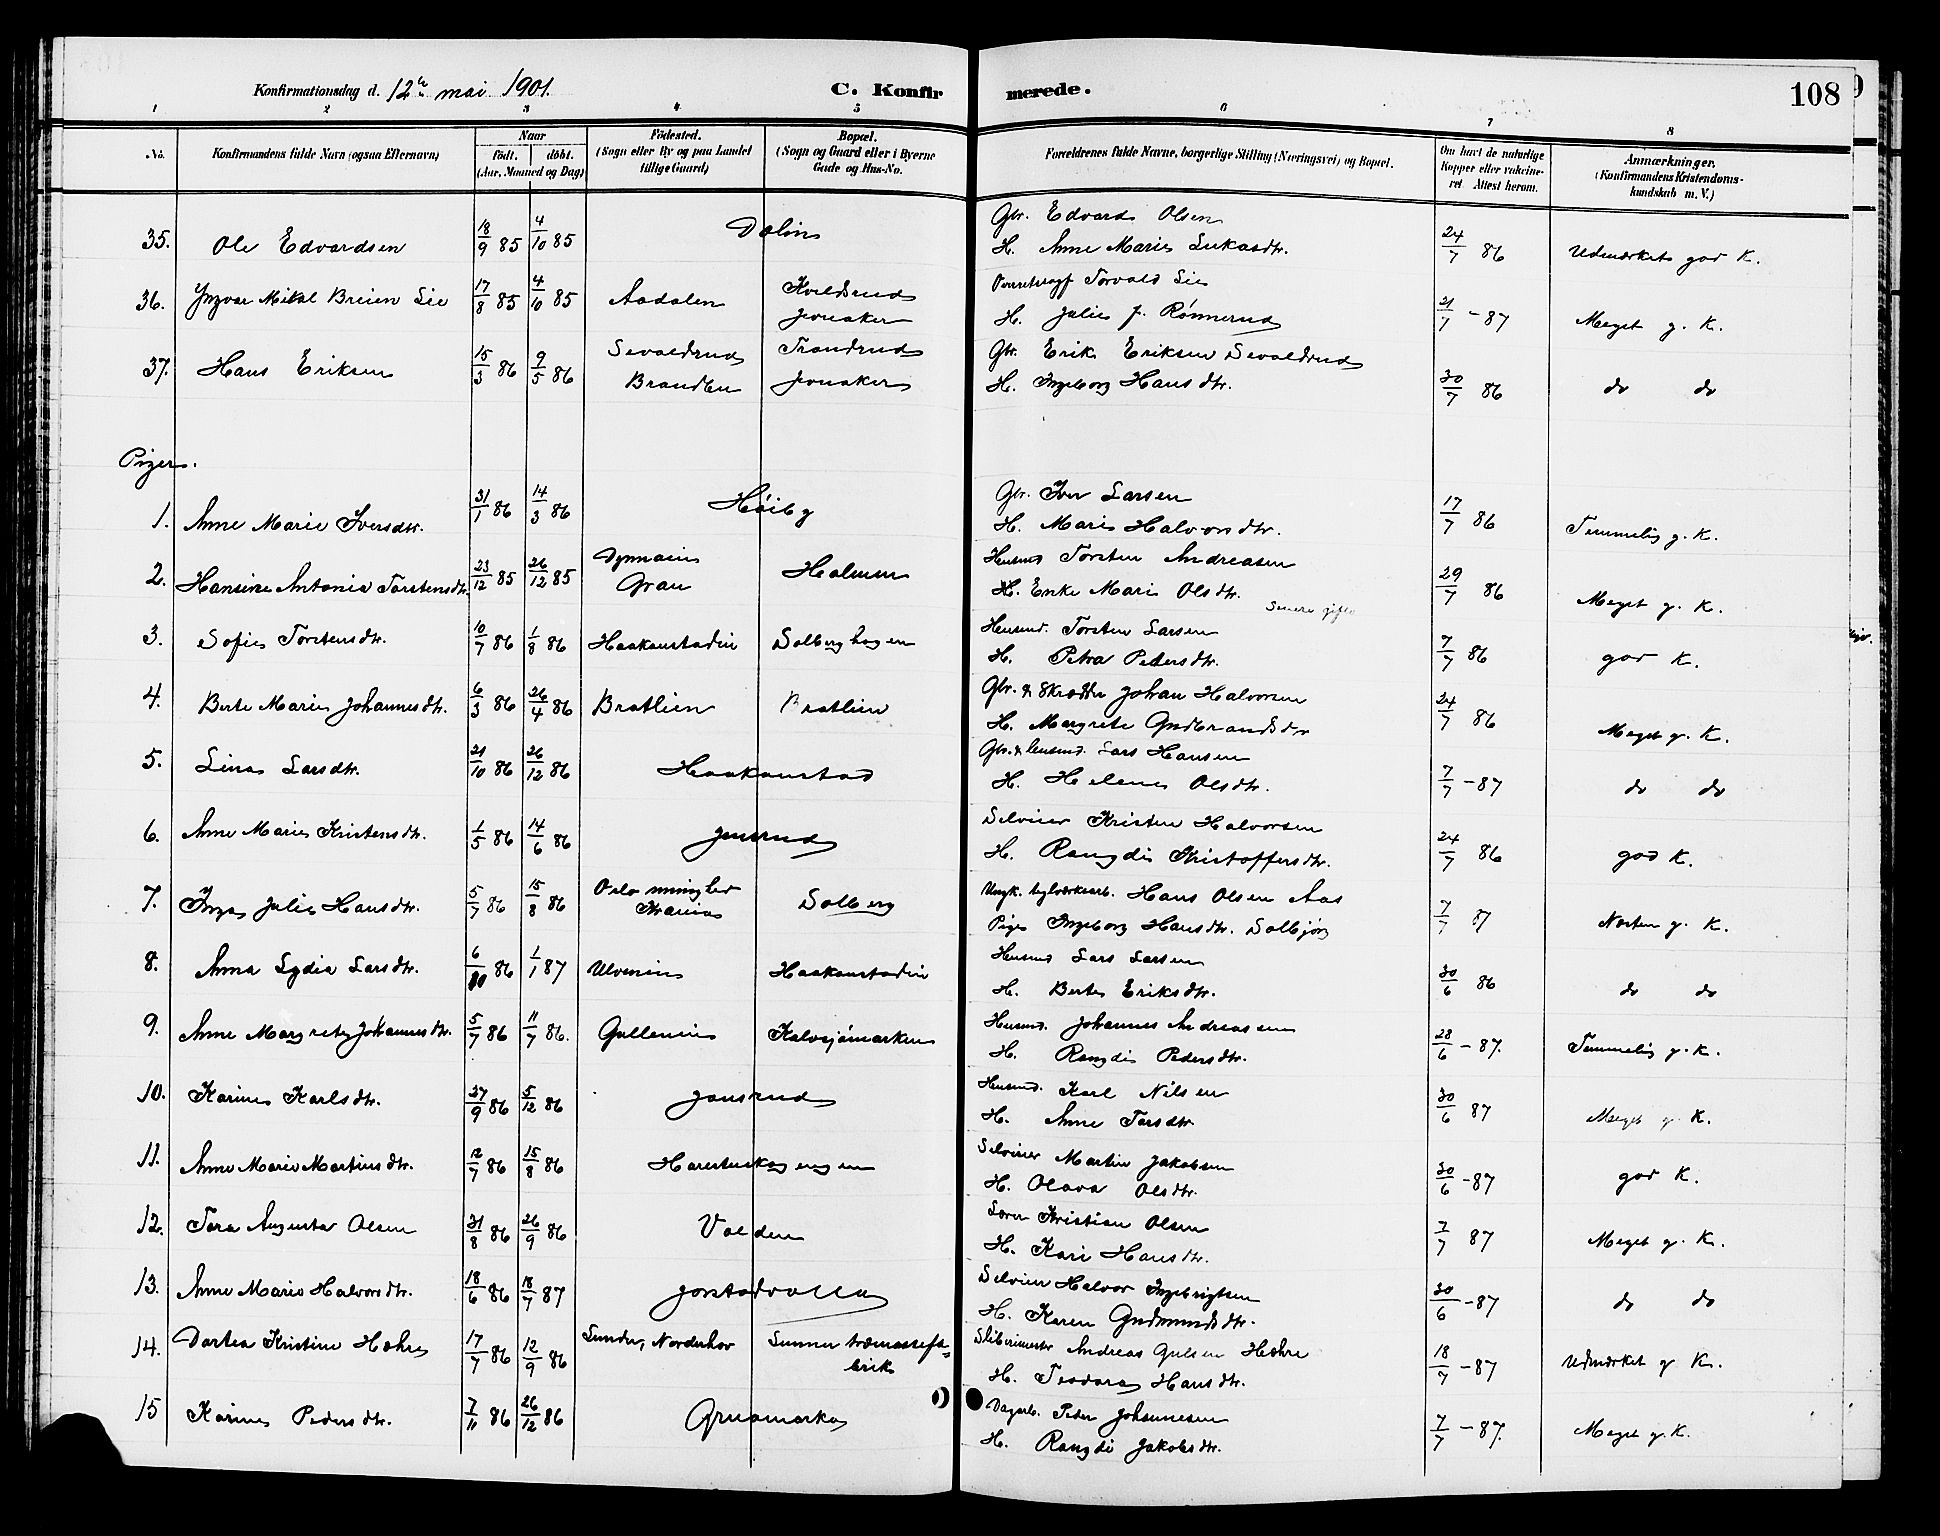 Konfirmationsdag d. 12te mai 1901. C. Konfirmerede. 108
1 2 3 4 5 6 7 8
No. Konfirmandens fulde Navn (ogsaa Efternavn) Naar födt. döbt. (Aar, Maaned og Dag) Födested. (Sogn eller By og paa Landet tillige Gaard) Bopæl. (Sogn og Gaard eller i Byerne Gade og Hus-No. Forældrenes fulde Navne, borgerlige Stilling (Næringsvei) og Bopæl. Om havt de naturlige Kopper eller vakcineret Attest herom. Anmærkninger. (Konfirmandens Kristendomskundskab m. V.)
35. Ole Edvardsen 18/9 85 4/10 85 Dølin Gbr. Edvard Olsen
H. Anne Marie Lukasdtr. 24/7 86 Udmærket god K.
36. Yngvar Mikal Breien Lie 17/8 85 4/10 85 Aadalen Kveldsrud Jevnaker Torvald Lie
H. Julie f. Rønnerud 21/7 - 87 Meget g. K.
37. Hans Eriksen 15/3 86 9/5 86 Sevaldrud Brandbu Trandrud Jevnaker Gbr. Erik Eriksen Sevaldrud
H. Ingeborg Hansdtr. 30/7 86 do do
Piger.
1. Anne Marie Iversdtr. 31/1 86 14/3 86 Høiby Gbr. Iver Larsen
H. Marie Halvorsdtr. 17/7 86 Temmelig g. K.
2. Hansine Antonie Torstensdtr. 23/12 85 26/12 85 Dynnaein Gran Holmen Husmd Torsten Andreasen
H. Enke Marie Olsdtr. Senere gift 29/7 86 Meget g. K.
3. Sofie Torstensdtr. 10/7 86 1/8 86 Haakenstadeie Solberghagen Husmd. Torsten Larsen
H. Petra Petersdtr. 7/7 86 god K.
4. Berte Marie Johannesdtr. 6/3 86 26/4 86 Bratlien Bratlien Gbr. & Skrædder Johan Halvorsen
H. Margrete Gudbrandsdtr 24/7 86 Meget g. K.
5. Lina Larsdtr. 21/10 86 26/12 86 Haakenstad Gbr. & husmd. Lars Hansen
H. Helene Olsdtr. 7/7 - 87 do do
6. Anne Marie Kristensdtr. 1/5 86 14/6 86 Jensrud Selveier Kristen Halvorsen
H. Rangdi Kristoffersdtr. 24/7 86 god K.
7. Inga Julie Hansdtr. 5/7 86 15/8 86 Oslo menighed Krania Solberg Ungk. teglværksarb. Hans Olsen Aas
Pige Ingeborg Hansdtr. Solbjør 7/7 87 Næsten g. K.
8. Anna Lydia Larsdtr. 6/10 86 1/1 87 Ulveneie Haakenstadeie Husmd Lars Larsen
H. Berte Eriksdtr. 30/6 86 do do
9. Anne Margrete Johannesdtr. 5/7 86 11/7 86. Gulleneie Kalvsjømarken Husmd. Johannes Andreasen
H. Rangdi Pedersdtr. 28/6 - 87. Temmelig g. K.
10. Karine Karlsdtr. 27/9 86 5/12 86 Jonsrud Husmd. Karl Nilsen
H. Anne Larsdtr 30/6 87 Meget g. K.
11. Anne Marie Martinsdtr. 12/7 86 15/8 86 Harestuskogengen Selveier Martin Jakobsen
H. Olava Olsdtr. 30/6 - 87 god K.
12. Tora Augusta Olsen 31/8 86 26/9 86 Volden Kristian Olsen
H. Kari Hansdtr. 7/7 87 Meget g. K.
13. Anne Marie Halvorsdtr. 18/6 86 18/7 87 Jorstadvolla Selveier Halvor Ingebrigtsen
H. Karen Gudmundsdtr. 30/6 - 87 do do
14. Dortea Kristine Hæhre 17/7 86 12/9 86 Norderhov Lunner træmassefabrik Sliberimester Andreas Gulsen Hæhre
H. Teodora Hansdtr. 18/7 - 87 Udmærket g K.
15 Karine Pedersdtr. 7/11 86 26/12 86 Gruamarka Dagarb. Peder Johannesen
H. Rangdi Jakobsdtr. 7/7 - 87. Meget g. K.